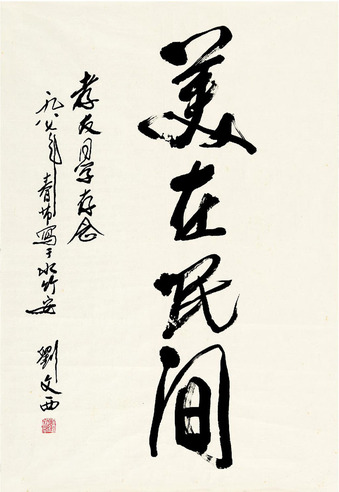 美在民间
孝友同学存念
一九八七年春节写于水竹安 劉文西